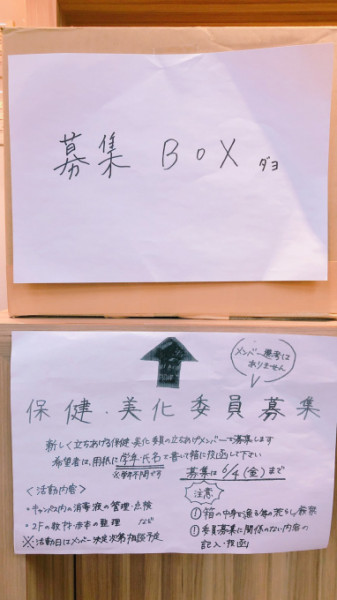 募集 BOX ダヨ
メンバー選考は
ありません
保健・美化委員募集
新しく立ちあげる保健・美化委員の立ちあげメンバーを募集します
希望者は、用紙に学年・氏名を書いて箱に投函して下さい
※学年不問です
募集は6/4(金)まで
<活動内容>
・キャンパス内の消毒液の管理・点検
・2Fの教科書の整理 など
※活動日はメンバー決定次第相談予定
注意
①箱の中身を
①委員募集に関係のない内容の
記入・投函